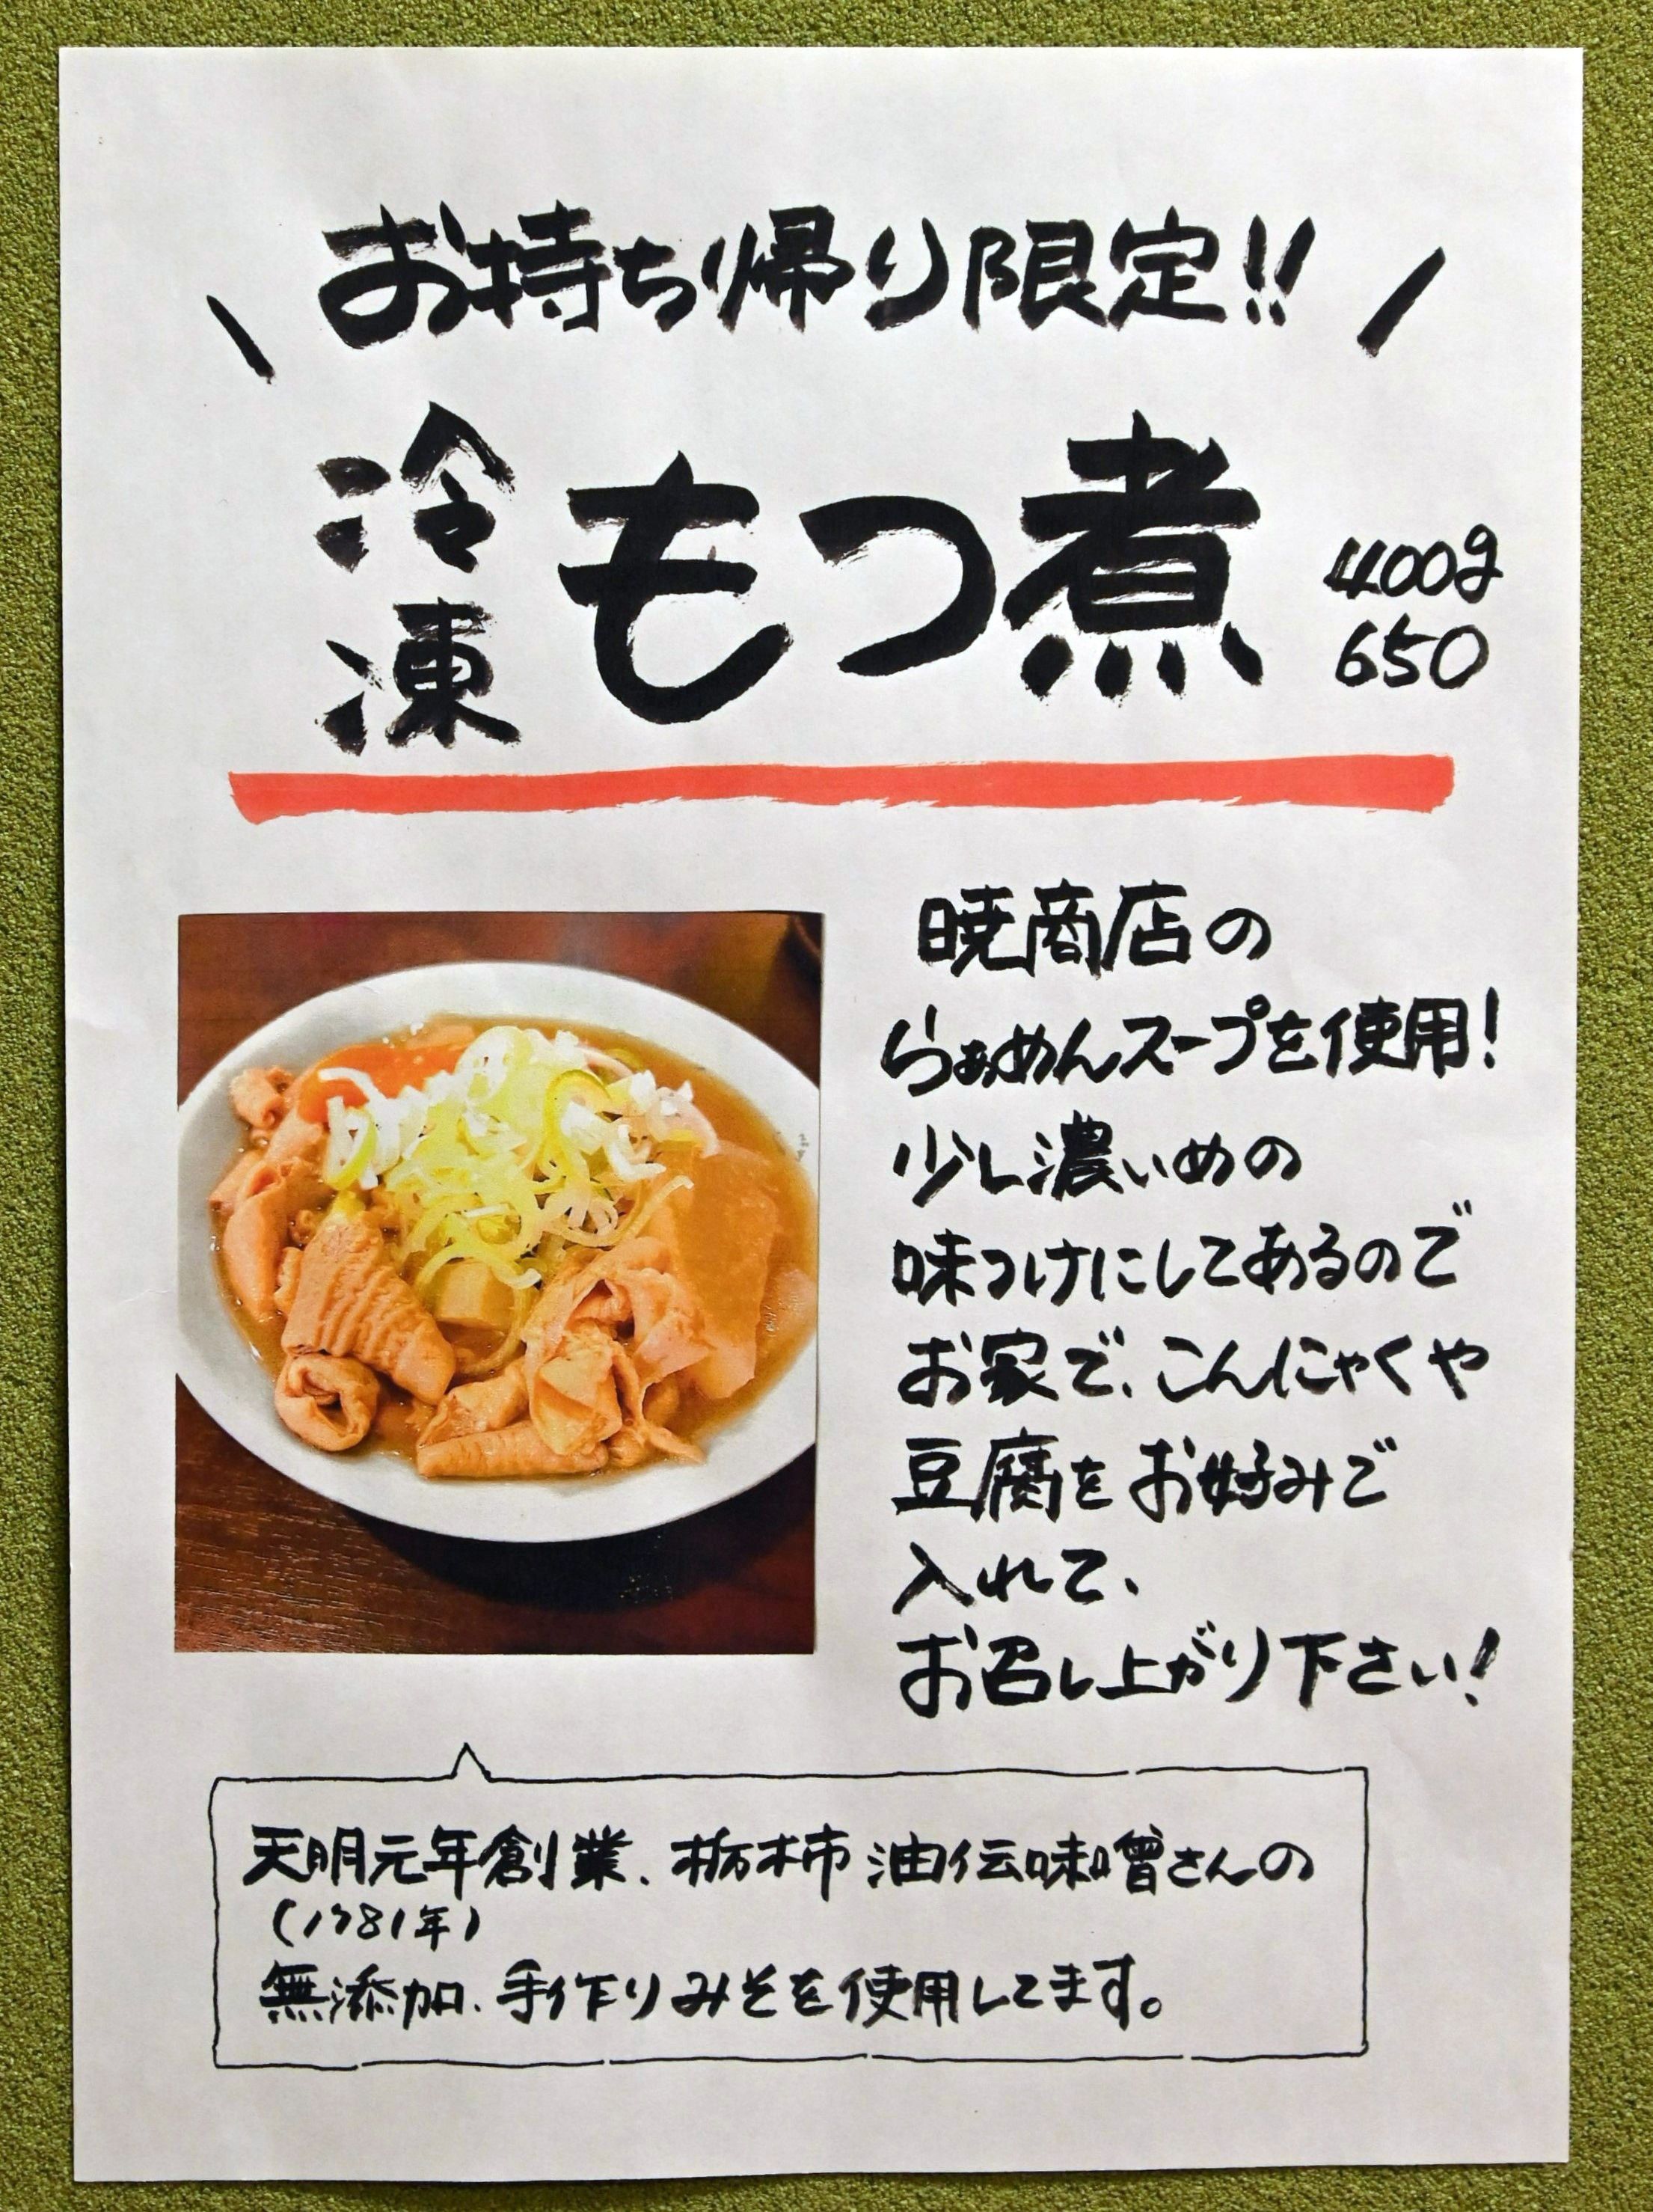 お持ち帰り限定!!
冷凍 もつ煮
400g
650
暁商店の
らぁめんスープを使用!
少し濃いめの
味つけにしてあるので
お家で、こんにゃくや
豆腐をお好みで
入れて、
お召し上がり下さい!
天明元年創業、栃木市 油伝味噌さんの
(1781年)
無添加、手作りみそを使用してます。